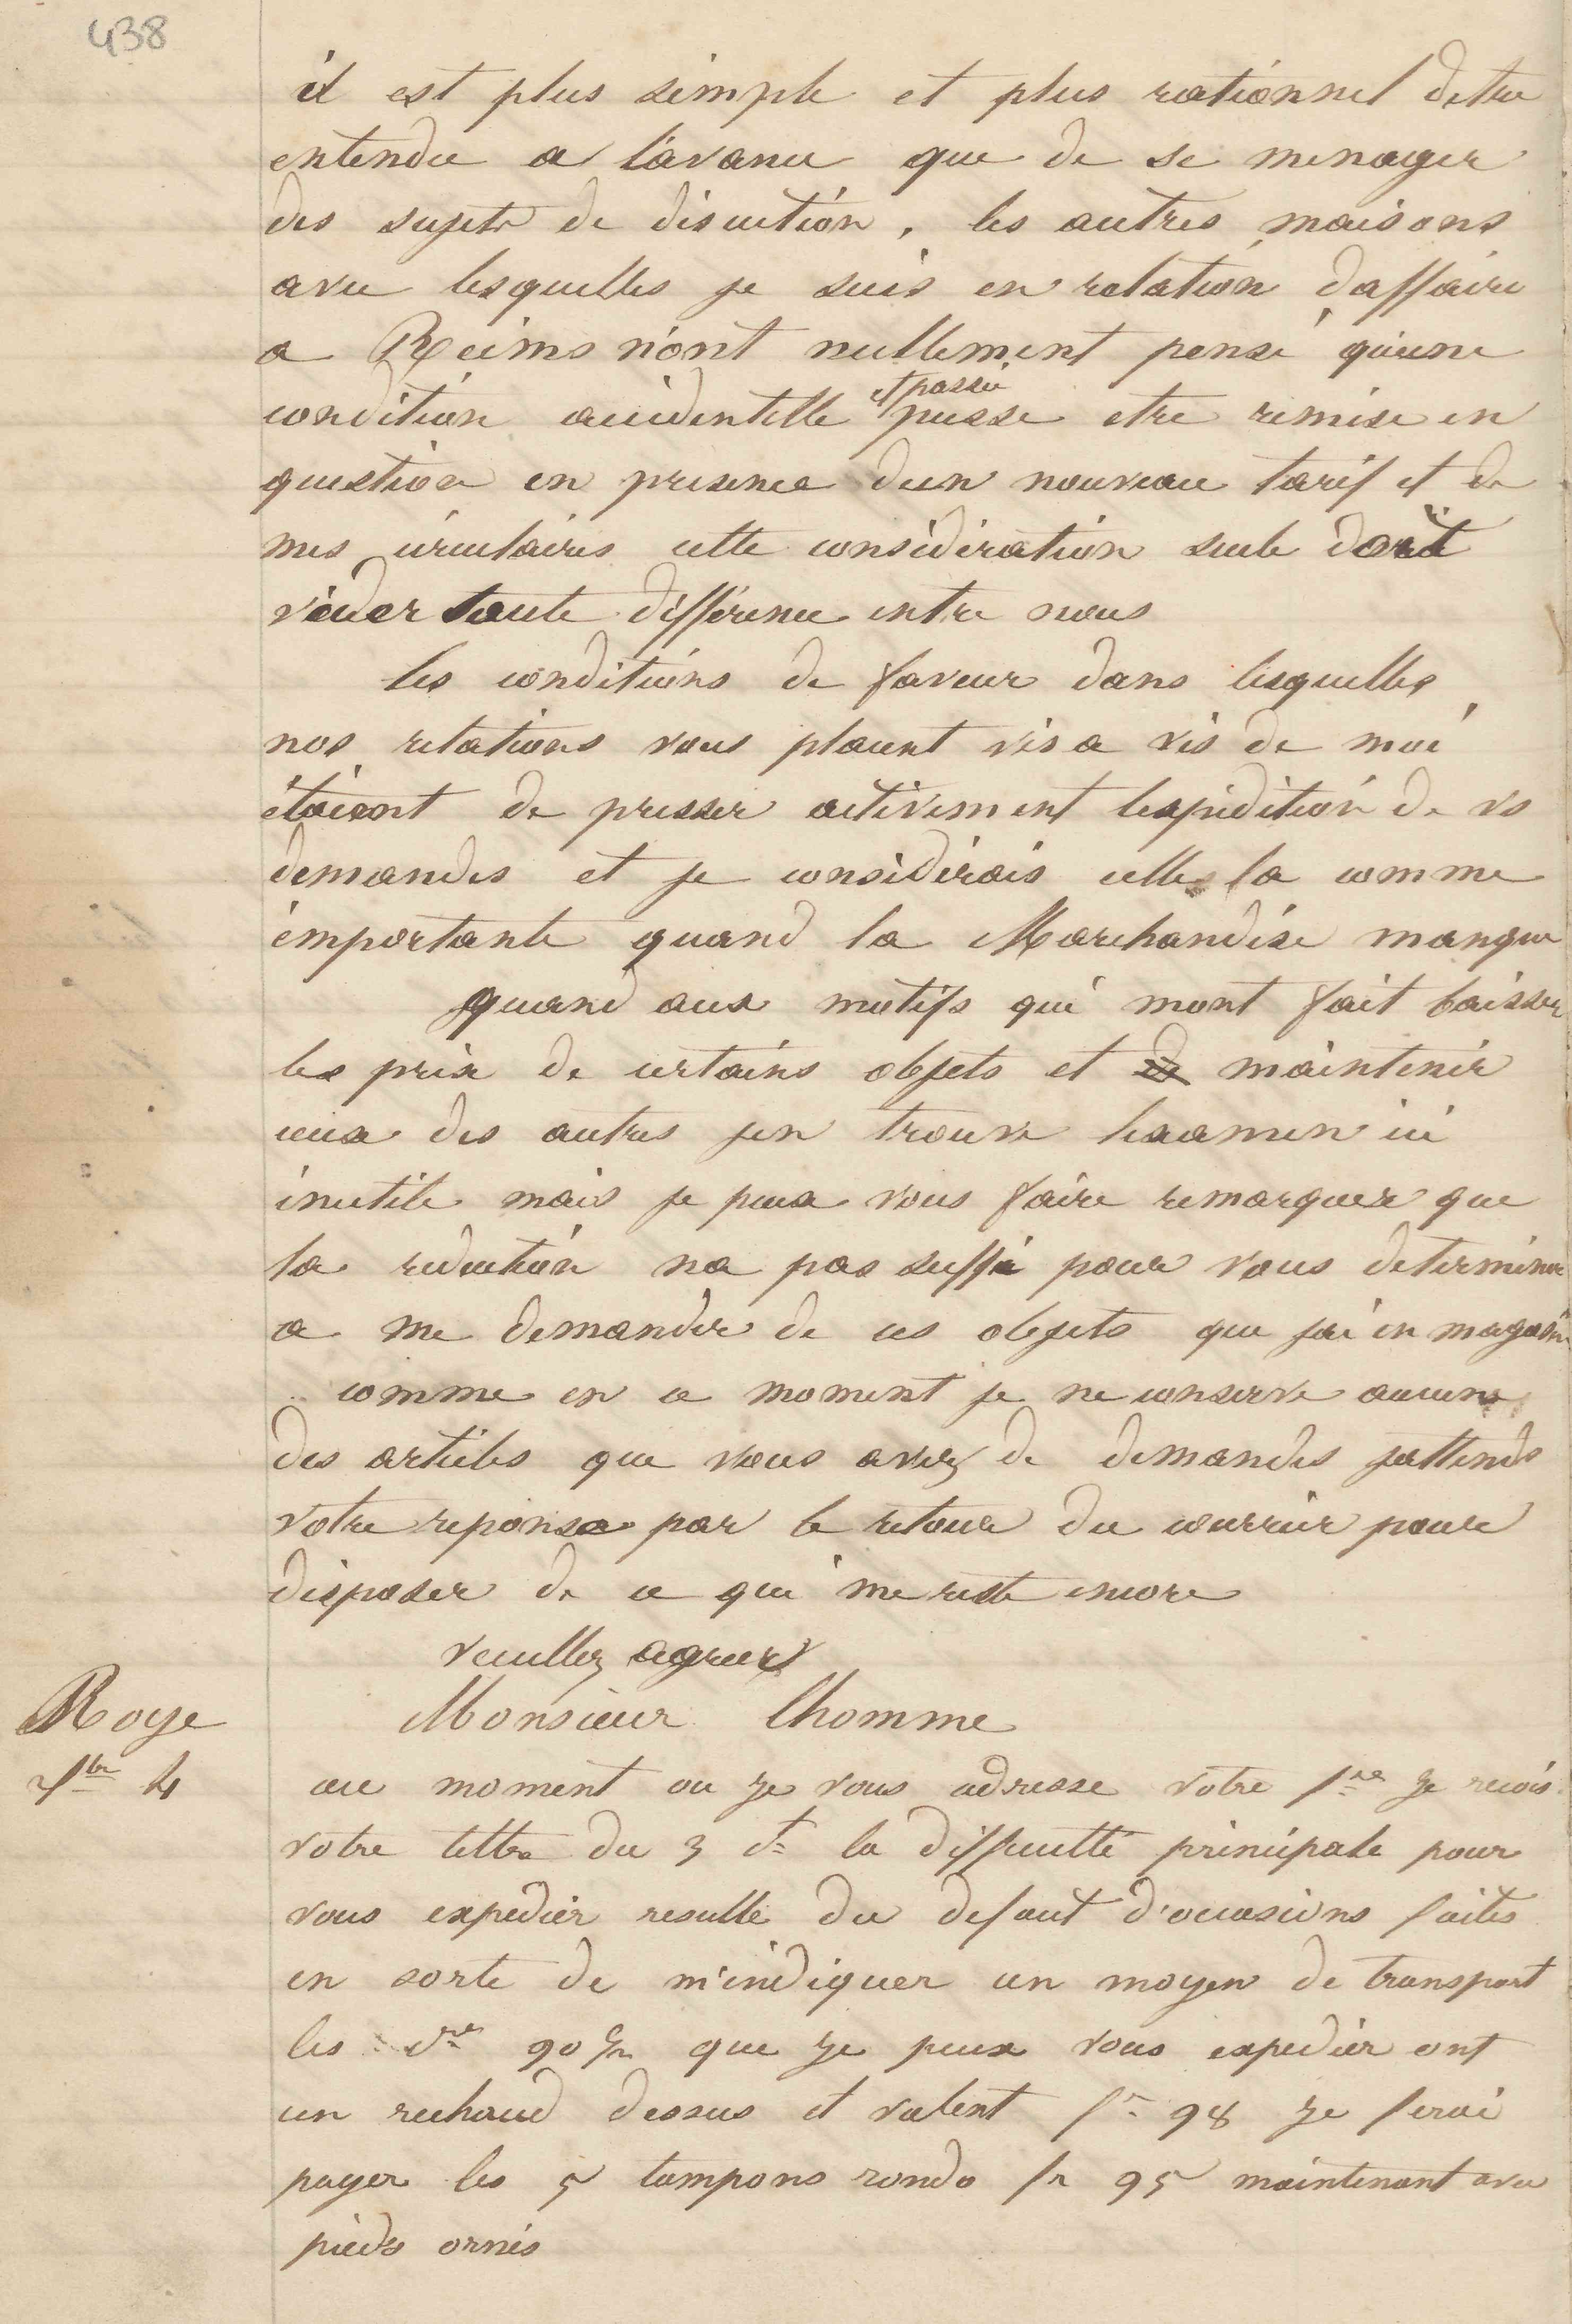 438
il est plus simple et plus rationnel detre
entendu a l'avance que de se menager
des sujets de discution, les autres maisons
avec lesquelles je suis en relation daffaire
a Reims n'ont nullement pensé qu'une
condition accidentelle et passée pusse etre remise en
question en presence dun nouveau tarif et de
mes circulaires cette considération seule doit
vider toute différence entre nous
les conditions de faveur dans lesquelles
nos relations vous placent vis a vis de moi
étoient de presser activement lexpédition de vs
demandes et je considérais celle la comme
importante quand la Marchandise manque
quand aux motifs qui mont fait baisser
les prix de certains objets et de maintenir
ceux des autres jen trouve lexamen ici
inutile mais je peux vous faire remarquer que
la réduction na pas suffi pour vous determiner
a me demander de ces objets que jai en magasin
comme en ce moment je ne conserve aucuns
des articles que vous avez de demandes jattends
votre reponse par le retour du courrier pour
disposer de ce qui me reste encore
veuillez agreer
Roye Monsieur Lhomme
7bre 4 au moment ou je vous adresse votre fre je recois
votre lettre du 3 ct la difficulté principale pour
vous expedier resulte du defaut d'occasions faites
en sorte de m'indiquer un moyen de transport
les 90 que je peux vous expedier ont
un rechaud dessus et valent fr 98 je ferai
payer les 5 tampons ronds fr 95 maintenant avec
pieds ornés